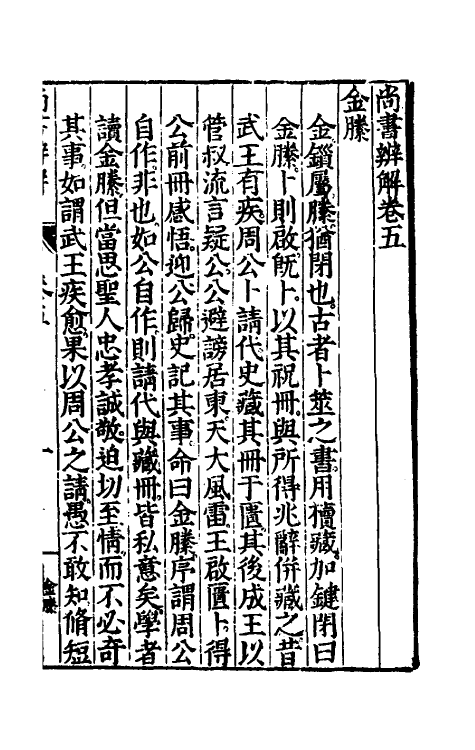 尚書辨解卷五
金縢
金鑕屬縢猶閉也古者卜筮之書用櫝藏加鍵閉曰
金縢卜則啟旣卜以其祝冊與所得兆辭併藏之昔
武王有疾周公卜請代史藏其冊于匱其後成王以
管叔流言疑公公避謗居東天大風雷王啟匱卜得
公前冊感悟迎公歸史記其事命曰金縢序謂周公
自作非也如公自作則請代與藏冊皆私意矣學者
讀金縢但當思聖人忠孝誠敬迫切至情而不必奇
其事如謂武王疾愈果以周公之請愚不敢知脩短
金縢